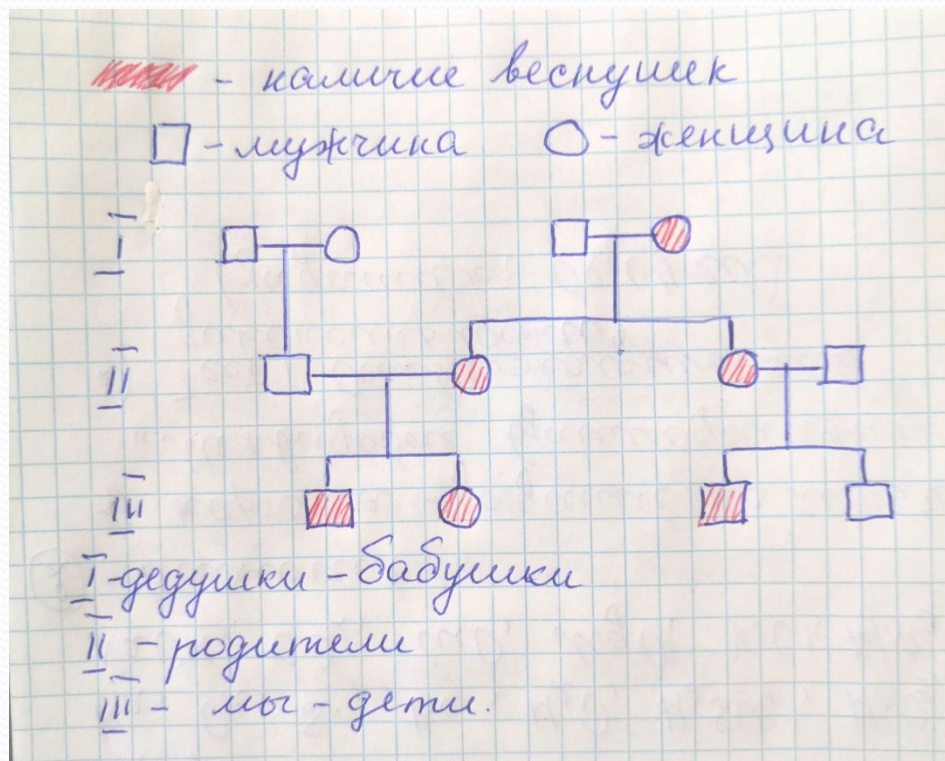 - наличие веснушек
- мужчина - женщина
I
II
III
I - дедушки - бабушки
II - родители
III - мы - дети.